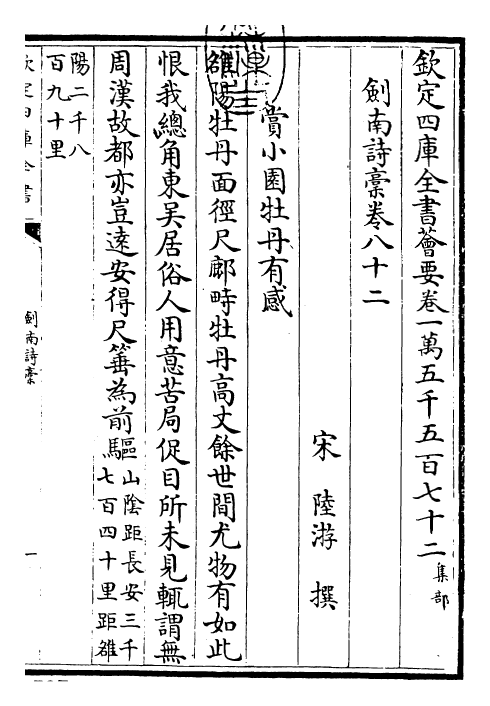 欽定四庫全書薈要卷一萬五千五百七十二 集部
劍南詩稾卷八十二
宋 陸游 撰
賞小園牡丹有感
雒陽牡丹面徑尺鄜畤牡丹高丈餘世間尤物有如此
恨我總角東吳居俗人用意苦局促目所未見輒謂無
周漢故都亦豈遠安得尺箠為前驅山陰距長安三千七百四十里距雒
陽二千八百九十里
欽定四庫全書
劍南詩稾
一